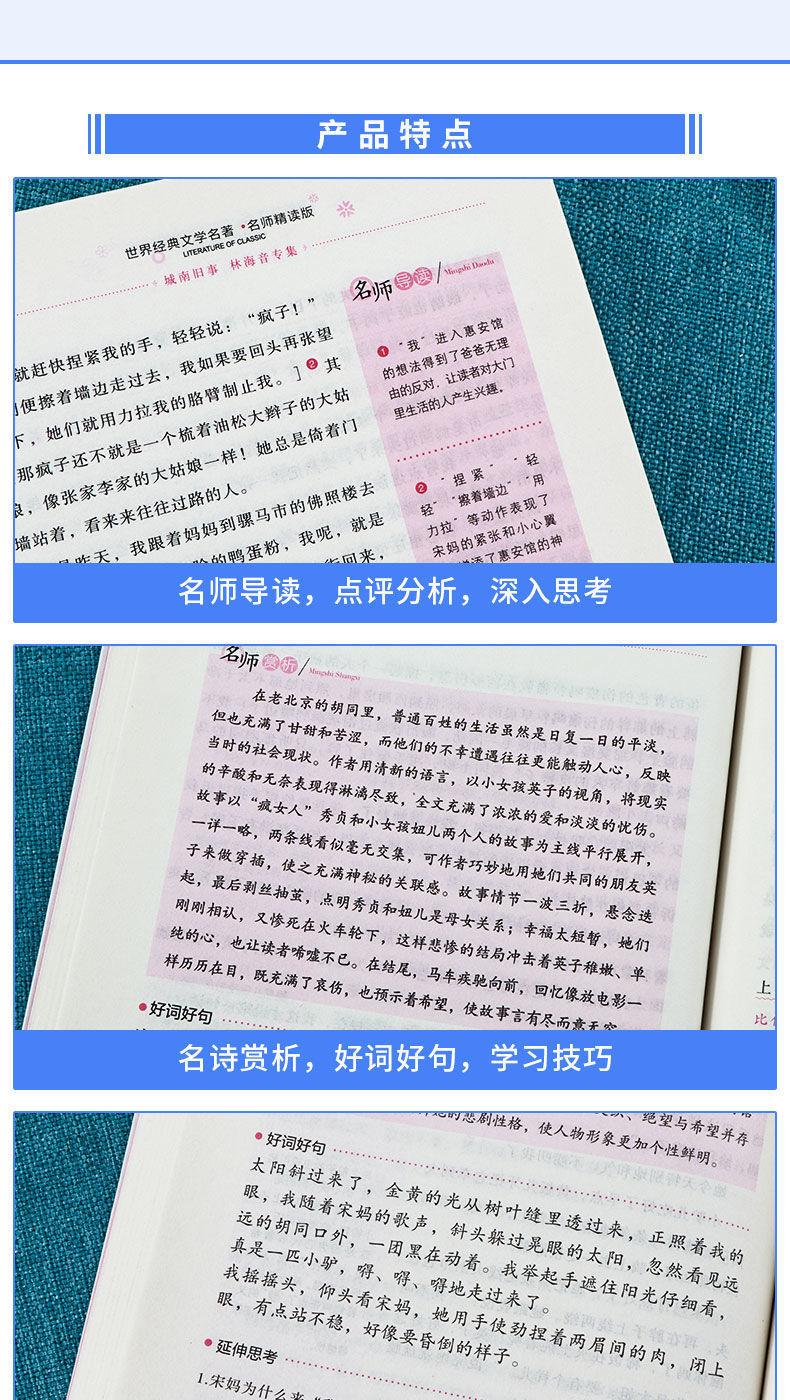 产品特点
世界经典文学名著·名师精读版
LITERATURE OF CLASSIC
城南旧事 林海音专集
名师导读/Mingshi Daodu
就赶快捏紧我的手，轻轻说：“疯子！”
便擦着墙边走过去，我如果要回头再张望
下，她们就用力拉我的胳臂制止我。］② 其
那疯子还不就是一个梳着油松大辫子的大姑
娘，像张家李家的大姑娘一样！她总是倚着门
墙站着，看来来往往过路的人。
是昨天，我跟着妈妈到骡马市的佛照楼去
的鸭蛋粉，我呢，就是
回来，
① “我”进入惠安馆
的想法得到了爸爸无理
由的反对，让读者对大门
里生活的人产生兴趣。
② “捏紧”“轻
轻”“擦着墙边”“用
力拉”等动作表现了
宋妈的紧张和小心翼
添了惠安馆的神
名师导读，点评分析，深入思考
名师赏析/Mingshi Shangxi
在老北京的胡同里，普通百姓的生活虽然是日复一日的平淡，
但也充满了甘甜和苦涩，而他们的不幸遭遇往往更能触动人心，反映
当时的社会现状。作者用清新的语言，以小女孩英子的视角，将现实
的辛酸和无奈表现得淋漓尽致，全文充满了浓浓的爱和淡淡的忧伤。
故事以“疯女人”秀贞和小女孩妞儿两个人的故事为主线平行展开，
一详一略，两条线看似毫无交集，可作者巧妙地用她们共同的朋友英
子来做穿插，使之充满神秘的关联感。故事情节一波三折，悬念迭
起，最后剥丝抽茧，点明秀贞和妞儿是母女关系；幸福太短暂，她们
刚刚相认，又惨死在火车轮下，这样悲惨的结局冲击着英子稚嫩、单
纯的心，也让读者唏嘘不已。在结尾，马车疾驰向前，回忆像放电影一
样历历在目，既充满了哀伤，也预示着希望，使故事言有尽而意无穷
好词好句
上
比
名诗赏析，好词好句，学习技巧
的悲剧性格，使人物形象更加个性鲜明。
绝望与希望并存
好词好句
太阳斜过来了，金黄的光从树叶缝里透过来，正照着我的
眼，我随着宋妈的歌声，斜头躲过晃眼的太阳，忽然看见远
远的胡同口外，一团黑在动着。我举起手遮住阳光仔细看，
真是一匹小驴，嘚、嘚、嘚地走过来了。
我摇摇头，仰头看宋妈，她用手使劲捏着两眉间的肉，闭上
眼，有点站不稳，好像要昏倒的样子。
延伸思考
1.宋妈为什么来